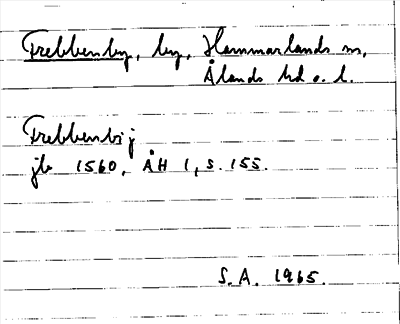 Frebbenby, by, Hammarlands sn,
Ålands hd o. l.
Frebbensbij
jb 1560, ÅH 1, s. 155.
S.A. 1965.